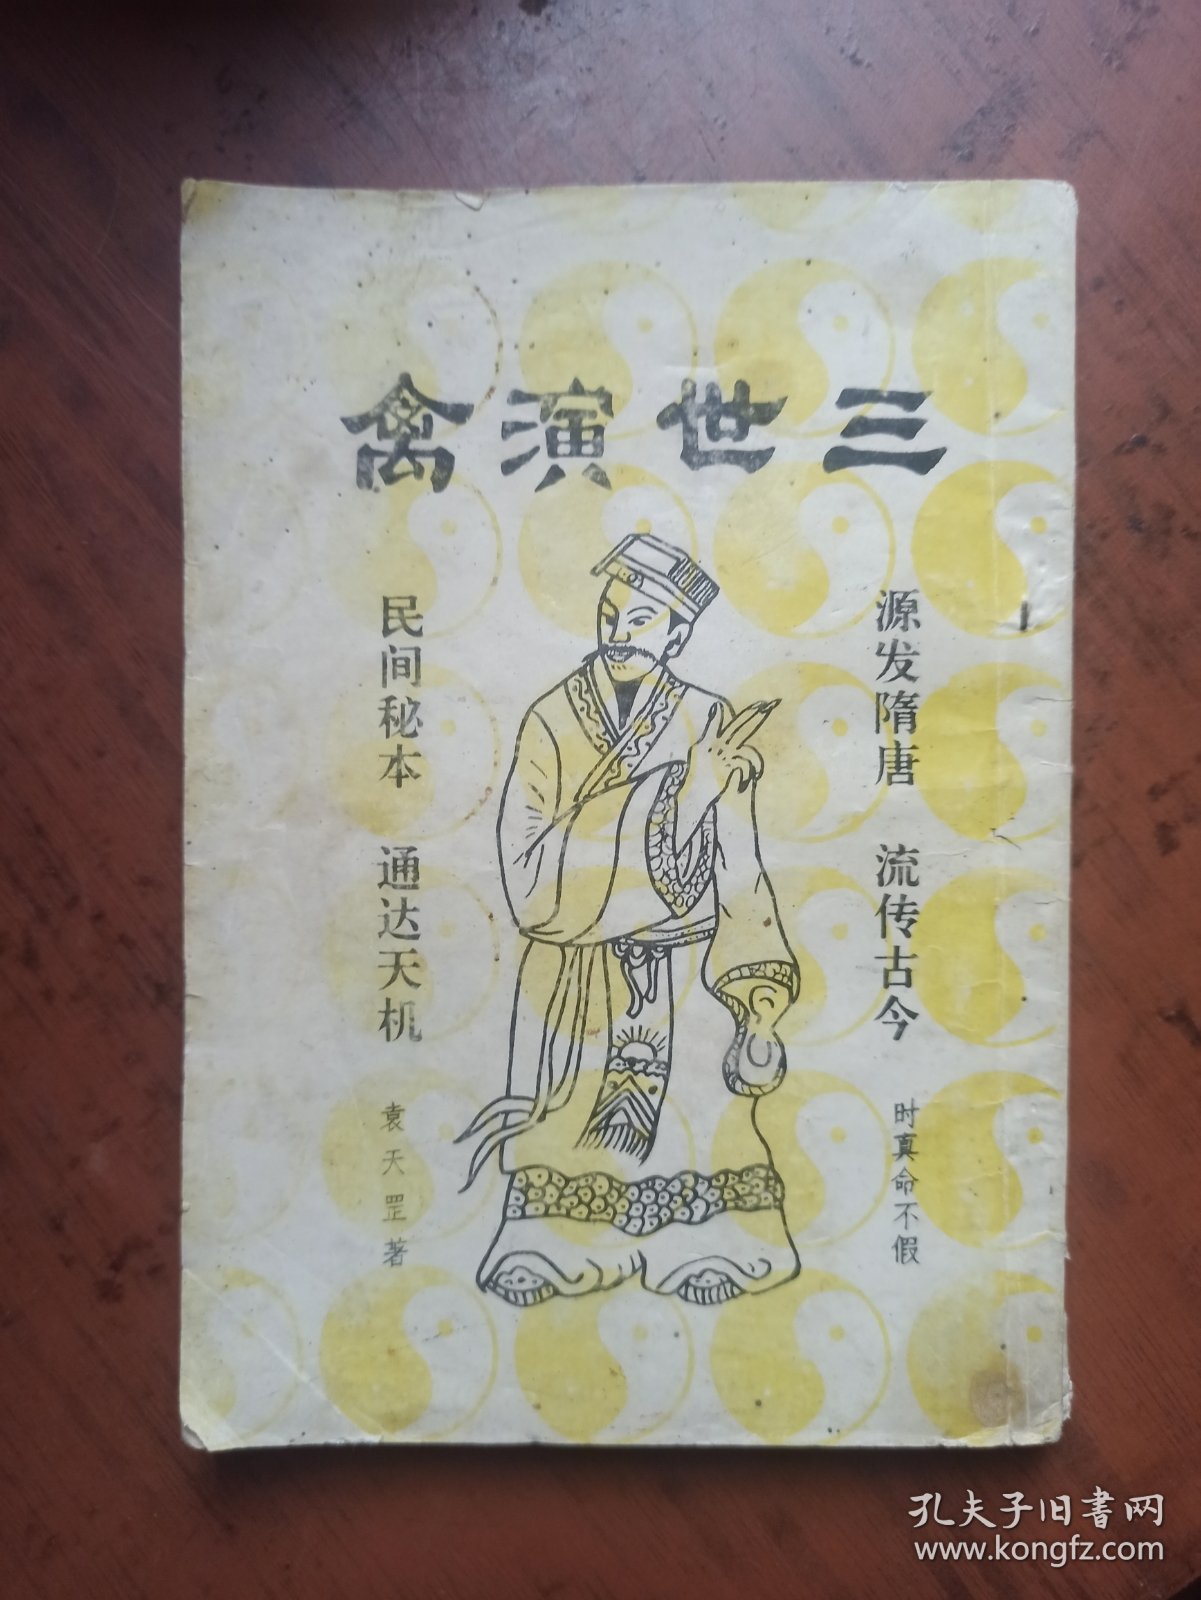 三世演禽
源发隋唐 流传古今
时真命不假
民间秘本 通达天机
袁天罡著
孔夫子旧书网
www.kongfz.com